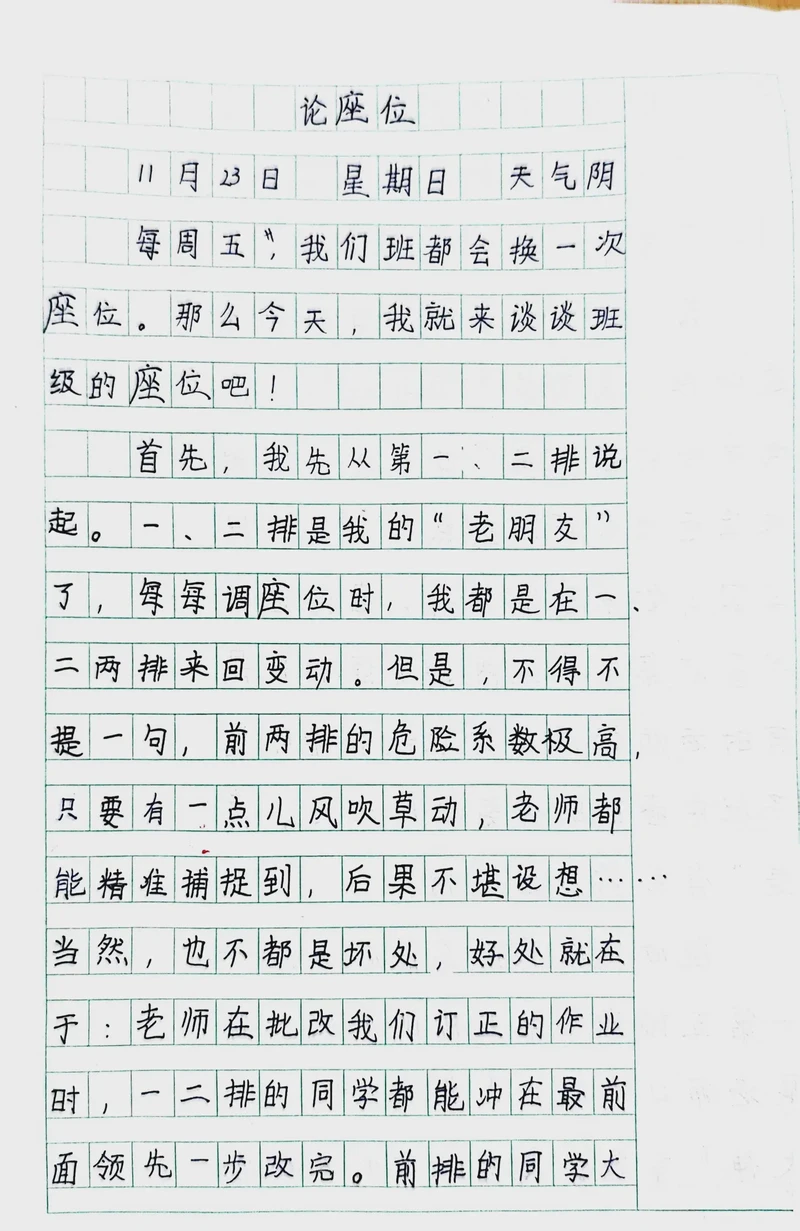 论座位
11月23日 星期日 天气阴
每周五，我们班都会换一次
座位。那么今天，我就来谈谈班
级的座位吧！
首先，我先从第一、二排说
起。一、二排是我的“老朋友”
了，每每调座位时，我都是在一、
二两排来回变动。但是，不得不
提一句，前两排的危险系数极高，
只要有一点儿风吹草动，老师都
能精准捕捉到，后果不堪设想……
当然，也不都是坏处，好处就在
于：老师在批改我们订正的作业
时，一二排的同学都能冲在最前
面领先一步改完。前排的同学大